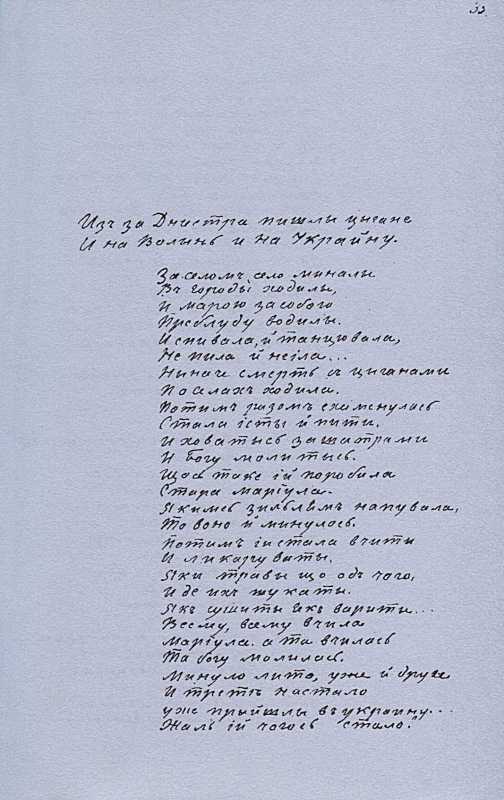 32
Изъ за Днистра пишлы цыгане
И на Волынь и на Украйну.
За селомъ село миналы
Въ городы ходылы,
И марою за собою
Приблуду водилы.
И спивала, й танцювала,
Не пила й неіла...
Ныначе смерть съ цыганами
По селахъ ходила.
Потимъ разомъ схаменулась
Стала їсты й пити.
И ховатысь за шатрами
И Богу молитысь.
Щось таке ій поробила
Стара Маріула.
Якимсь зильлямъ напувала,
То воно й минулось.
Потимъ іи стала вчити
И ликарувати.
Яки травы що одъ чого,
И де ихъ шукаты.
Якъ сушиты якъ варити...
Всёму, всёму вчила
Маріула. а та вчилась
Та богу молилась.
Минуло лито, уже й друге
И третє настало
уже прыйшлы въ украину...
Жаль ій чогось стало."